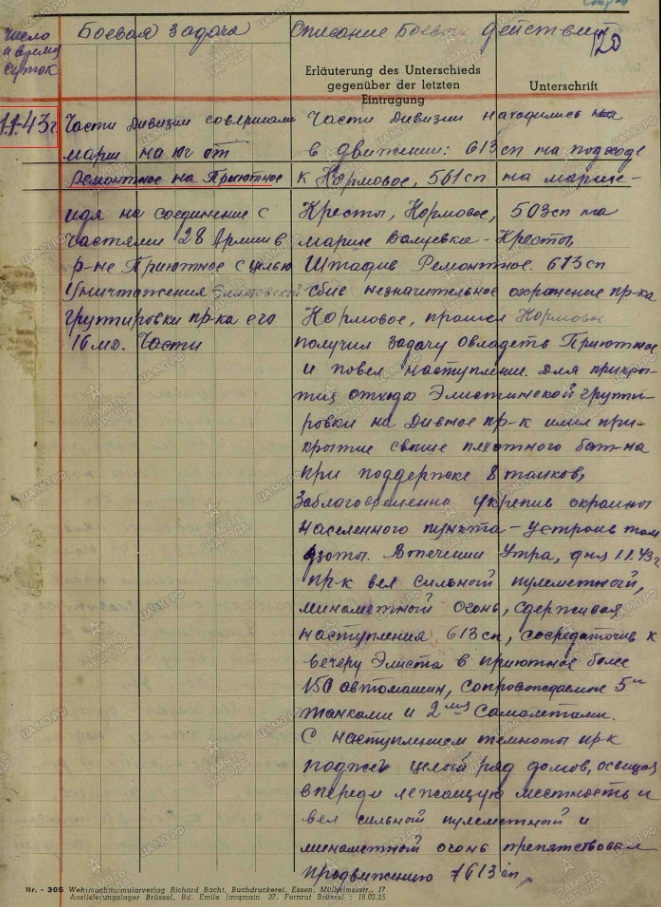 Число и время суток
Боевая задача
Описание Боевых действий
120
Erläuterung des Unterschieds
gegenüber der letzten
Eintragung
Unterschrift
1.1.43г
Части дивизии совершали
марш на юг от
Ремонтное на Приютное
идя на соединение с
частями 28 Армии в
р-не Приютное с целью
Уничтожения Элистовской
группировки пр-ка его
16 мд. Части
Части дивизии находились на
в движении: 613 сп на подходе
к Кормовое, 561 сп на марше-
Кресты, Кормовое, 503 сп на
марше Валуевка - Кресты,
Штадив Ремонтное. 613 сп
сбив незначительное охранение пр-ка
Кормовое, прошел Кормовое
получил задачу овладеть Приютное
и повел наступление. Для прикры-
тия отхода Элистинской группи-
ровки на Дивное пр-к имел при-
крытие свыше пехотного бат-на
при поддержке 8 танков,
Заблаговременно укрепив окраины
населенного пункта - устроив там
дзоты. В течении Утра, дня 1.1.43г
пр-к вел сильной пулеметный,
минометный огонь, сдерживая
наступления 613 сп, сосредоточив к
вечеру Элиста в приютное более
150 автомашин, сопровождаемые 5ю
танками и 2мя Самолетами.
С наступлением темноты пр-к
поджег целый ряд домов, освещая
впереди лежащую местность и
вел сильной пулеметный и
минометный огонь препятствовал
продвижению 613 сп,
Nr. - 305 Wehrmachtformularverlag Richard Bacht, Buchdruckerei, Essen, Mülheimerstr. 17.
Auslieferungslager Brüssel, Bd. Emile Jacqmain 37, Fernruf Brüssel : 18.02.25